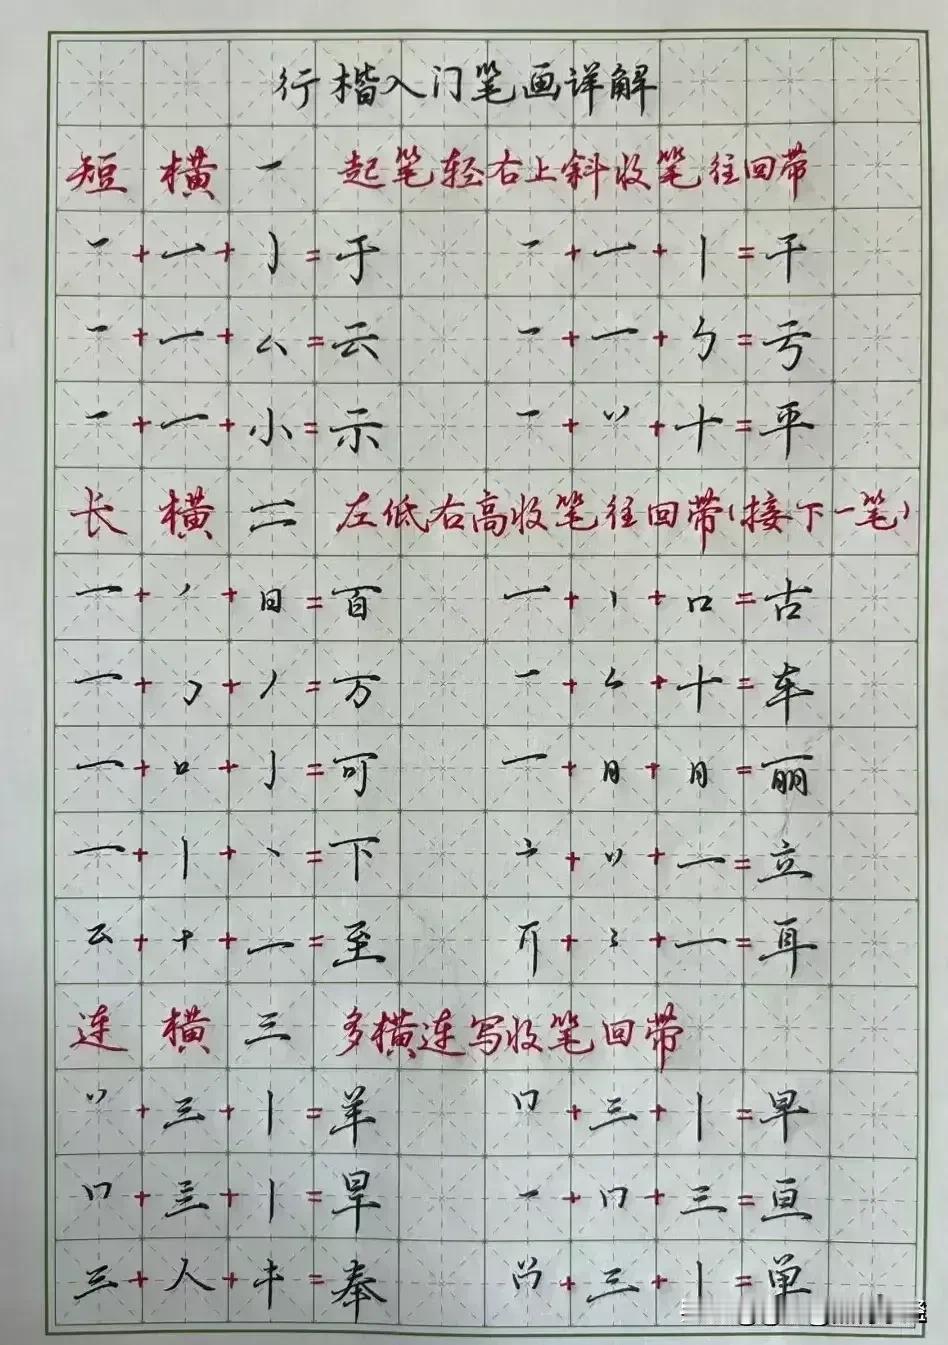 行楷入门笔画详解
短横 一 起笔轻右上斜收笔往回带
一+一+亅=于 一+一+丨=干
一+一+厶=云 一+一+㇉=亏
一+一+小=示 一+丷+十=平
长横 二 左低右高收笔往回带(接下一笔)
一+丿+日=百 一+丨+口=古
一+㇆+丿=万 一+𠃋+十=车
一+口+亅=可 一+冃+冃=丽
一+丨+丶=下 亠+丷+一=立
云+十+一=至 丌+冫+一=耳
连横 三 多横连写收笔回带
丷+三+丨=羊 冂+三+丨=早
冂+三+丨=旱 一+冂+三=亘
三+人+キ=奉 三+丨=单